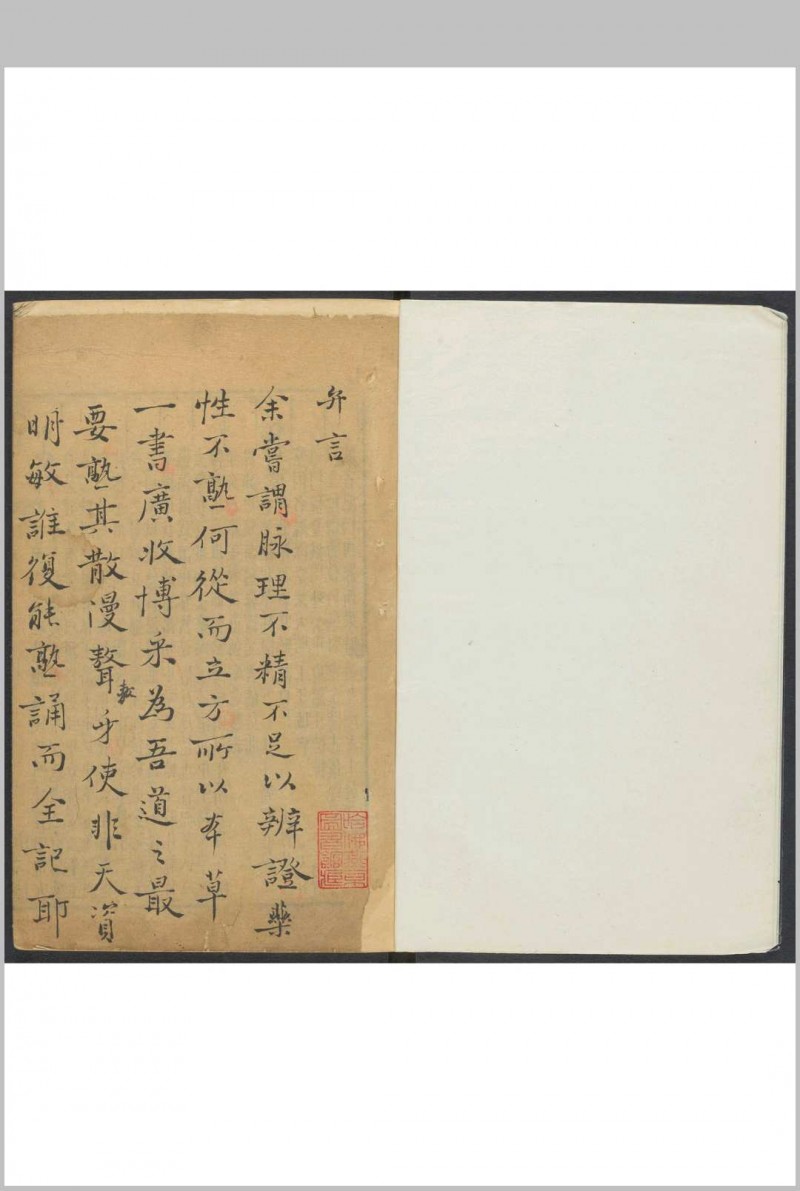 弁言
余嘗謂脉理不精不足以辨證藥
性不熟何從而立方所以夲草
一書廣收博采為吾道之最
要熟其散漫聱牙使非天資
敖
明敏誰復能熟誦而全記耶